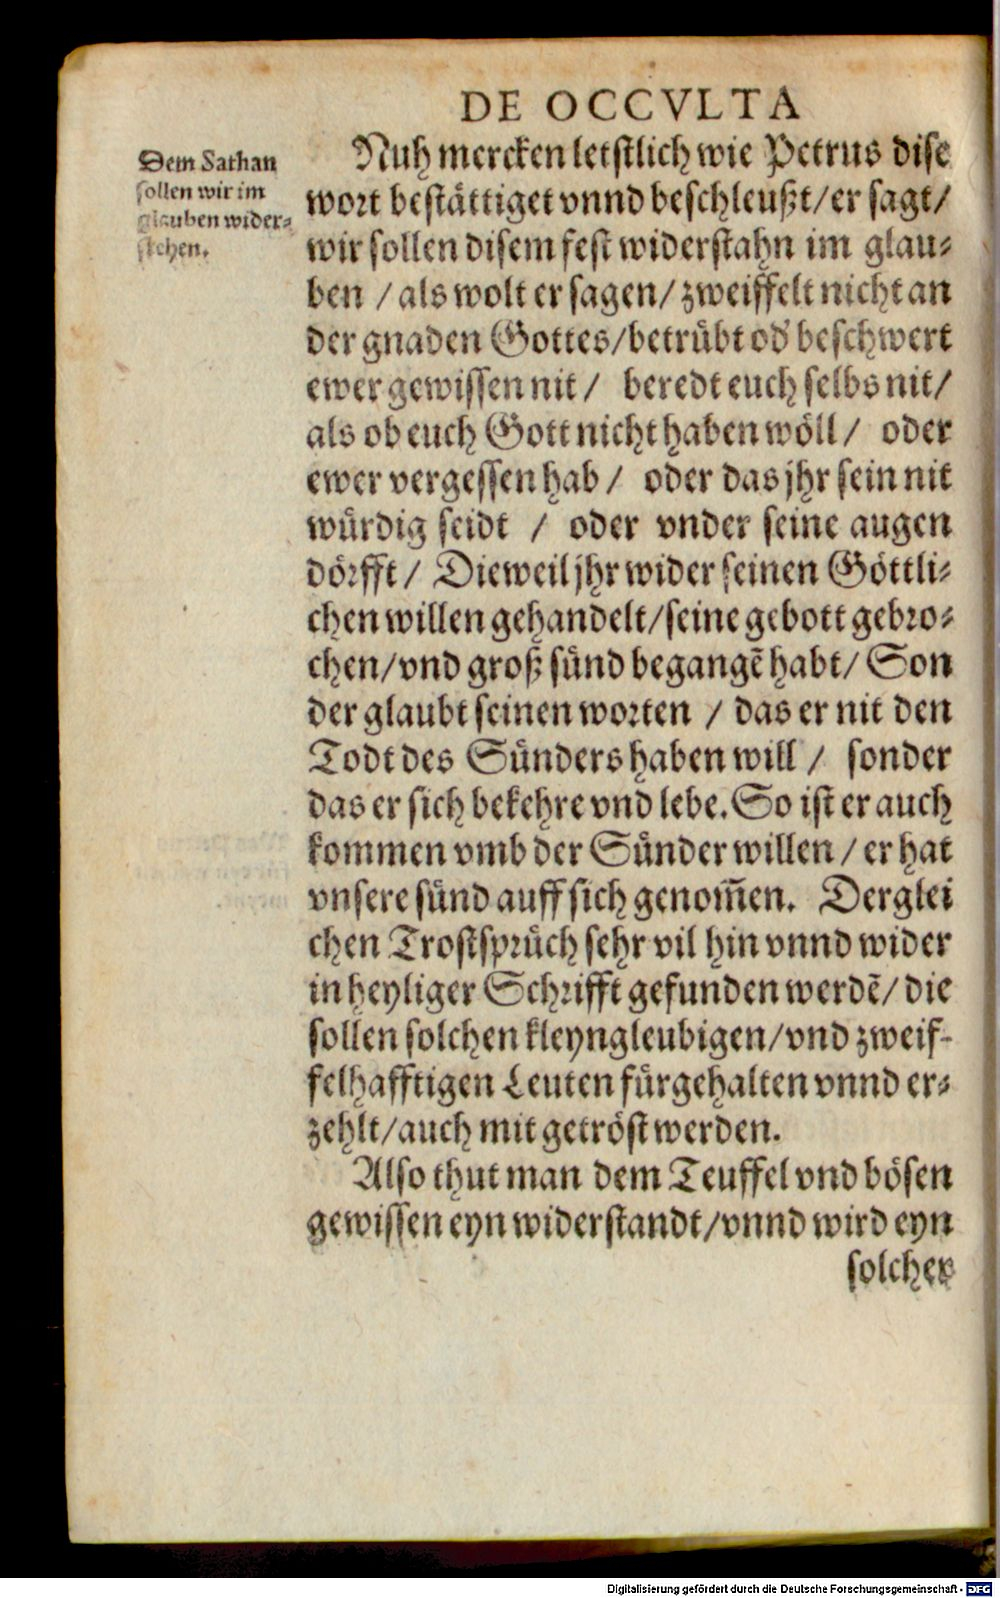 DE OCCVLTA
Dem Sathan
sollen wir im
glauben wider⸗
stehen.
Nuh mercken letstlich wie Petrus dise
wort bestättiget vnnd beschleußt/er sagt/
wir sollen disem fest widerstahn im glau⸗
ben / als wolt er sagen/ zweiffelt nicht an
der gnaden Gottes/betrübt od' beschwert
ewer gewissen nit / beredt euch selbs nit/
als ob euch Gott nicht haben wöll / oder
ewer vergessen hab / oder das jhr sein nit
würdig seidt / oder vnder seine augen
dörfft / Dieweil jhr wider seinen Göttli⸗
chen willen gehandelt/seine gebott gebro⸗
chen/vnd groß sünd begangē habt/ Son
der glaubt seinen worten / das er nit den
Todt des Sünders haben will / sonder
das er sich bekehre vnd lebe. So ist er auch
kommen vmb der Sünder willen / er hat
vnsere sünd auff sich genom̄en. Derglei
chen Trostsprüch sehr vil hin vnnd wider
in heyliger Schrifft gefunden werdē/ die
sollen solchen kleyngleubigen/vnd zweif⸗
felhafftigen Leuten fürgehalten vnnd er⸗
zehlt/auch mit getröst werden.
Also thut man dem Teuffel vnd bösen
gewissen eyn widerstandt/vnnd wird eyn
solcher
Digitalisierung gefördert durch die Deutsche Forschungsgemeinschaft - DFG